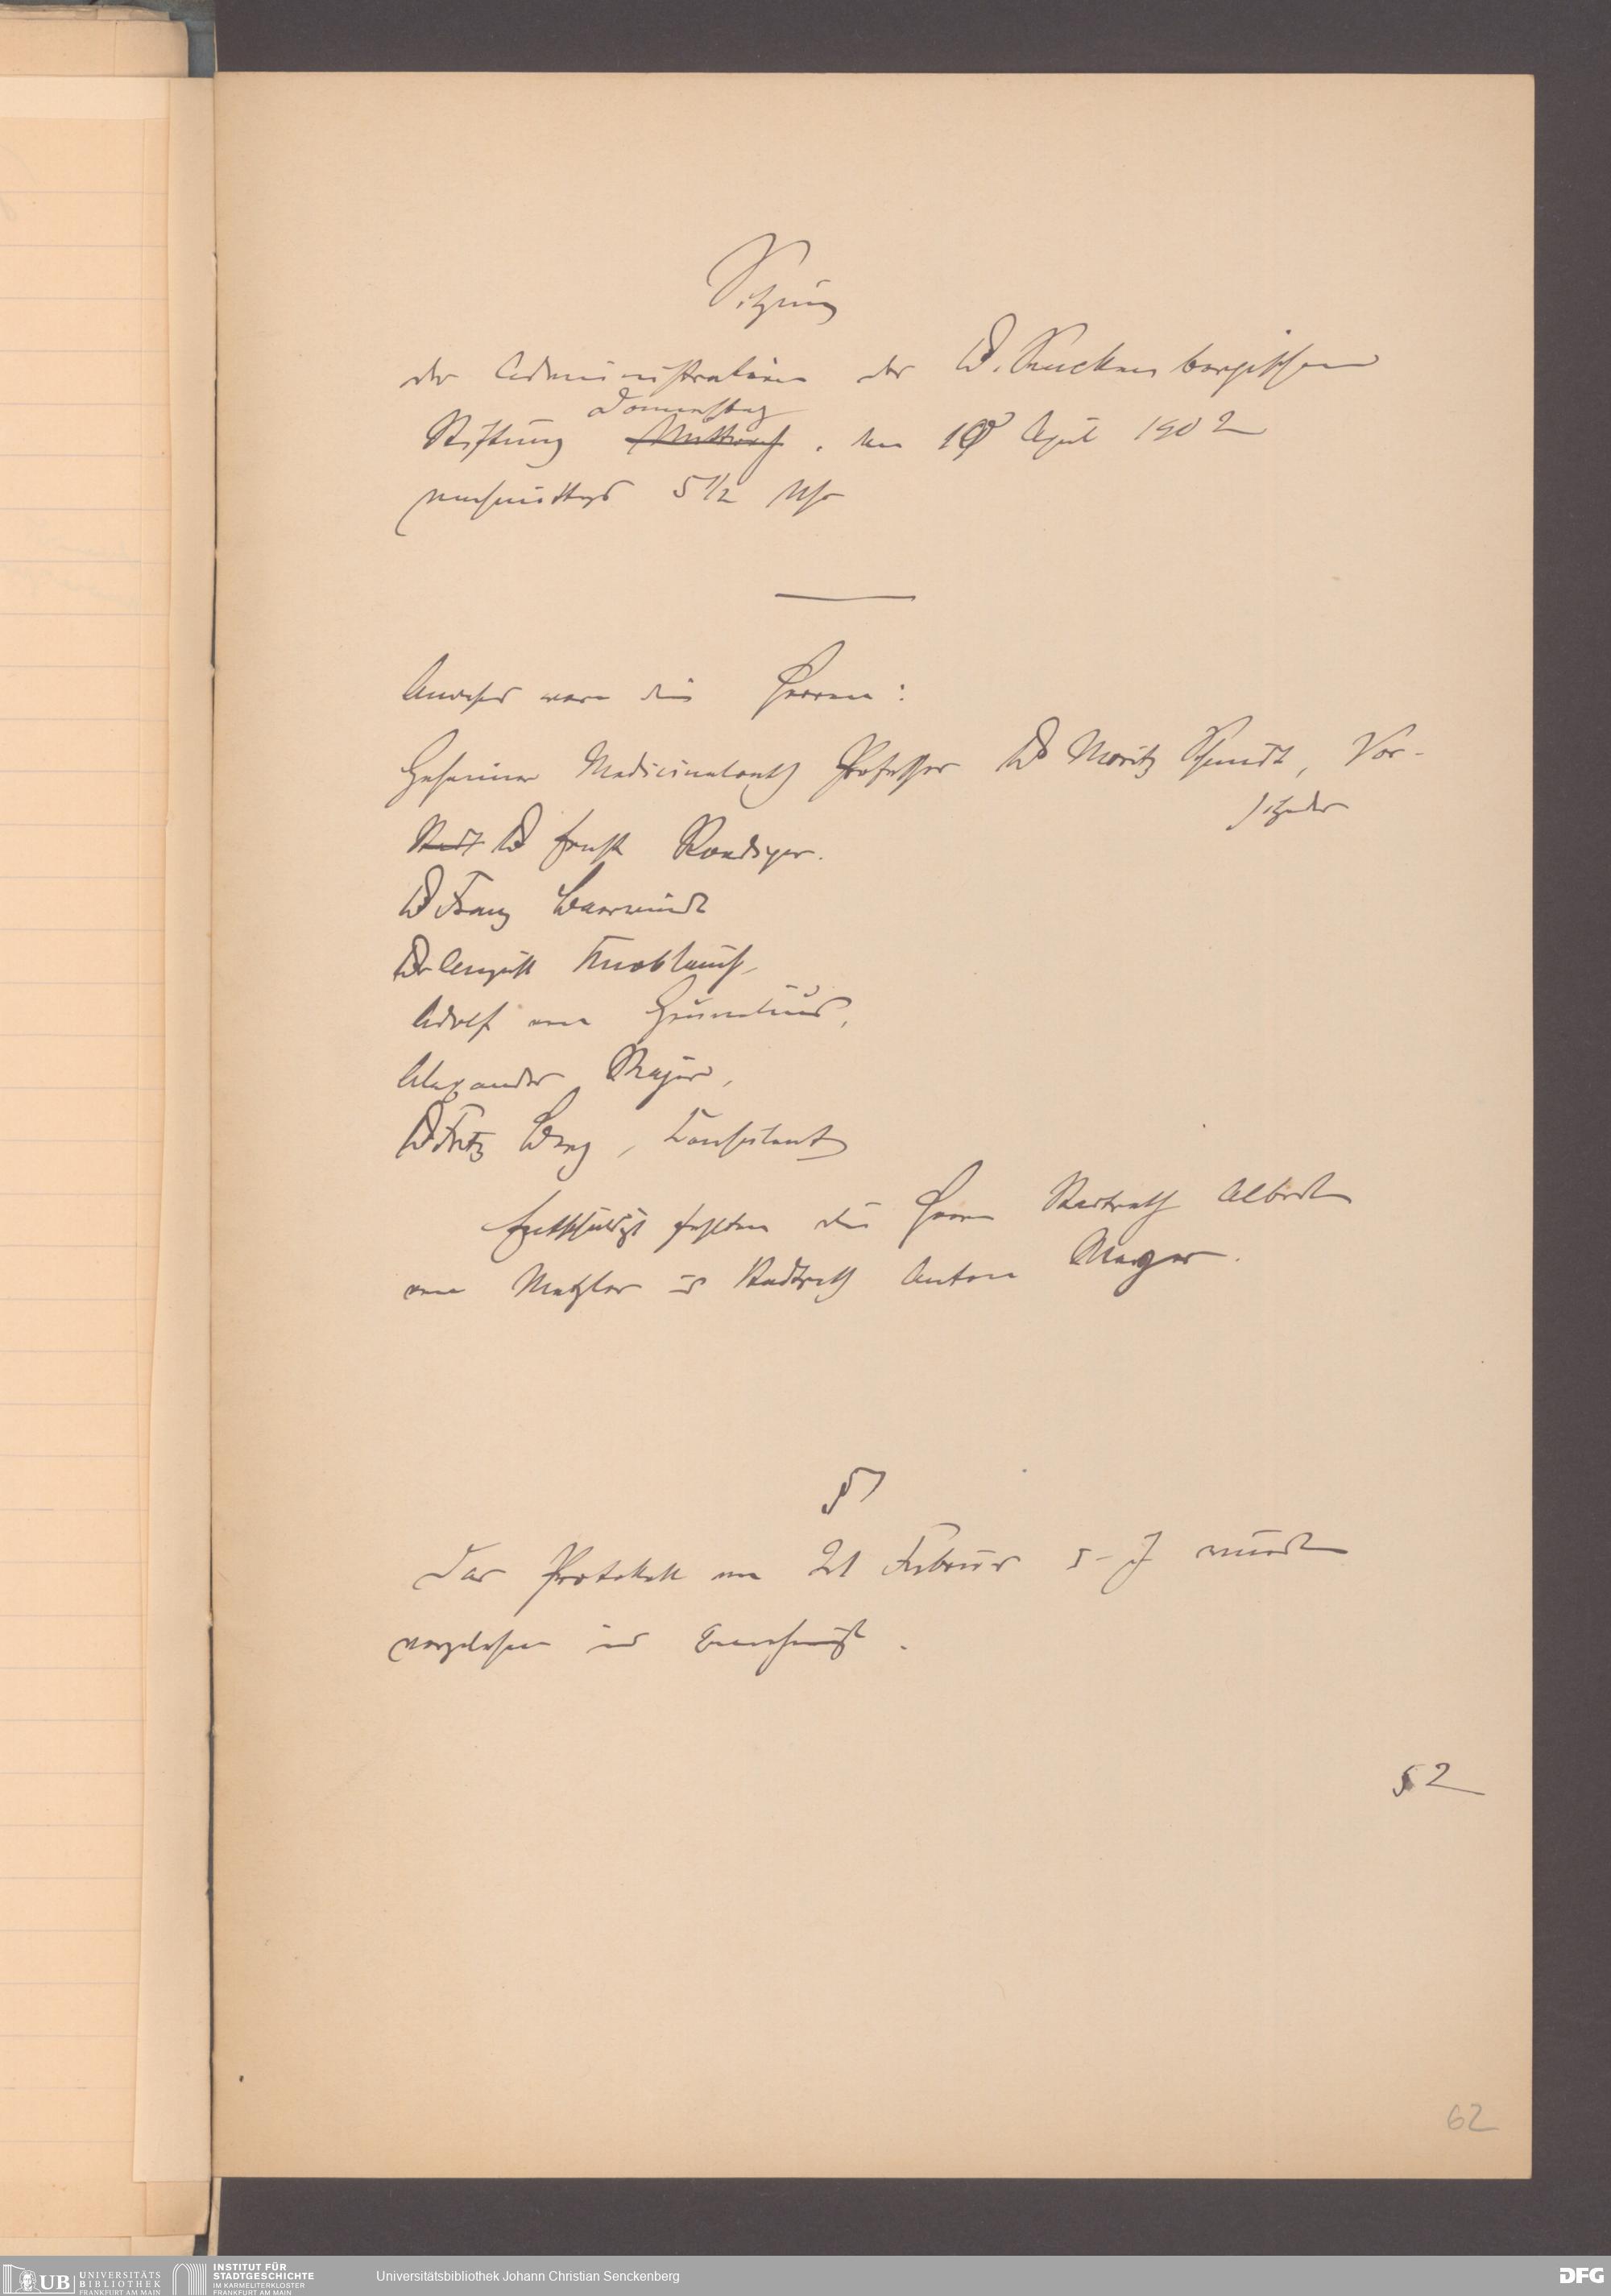 Sitzung
der Administration der Dr. Senckenbergischen
Donnerstag
Stiftung Mittwoch, den 10 April 1902
nachmittags 5 1/2 Uhr
Anwesend waren die Herren:
Geheimer Medicinalrath Professor Dr Moritz Schmidt, Vor-
sitzender
Stadt Dr Ernst Roediger.
Dr Franz Baerwindt
Dr August Knoblauch,
Adolf von Grunelius,
Alexander Majer,
Dr Fritz Berg, Consulent
Entschuldigt fehlten die Herren Stadtrath Albert
von Metzler u Stadtrath Anton Meyer.
§1
Das Protokoll vom 21 Februar d. J. wurde
vorgelesen und genehmigt.
§ 2
62
UB UNIVERSITÄTS
BIBLIOTHEK
FRANKFURT AM MAIN
INSTITUT FÜR
STADTGESCHICHTE
IM KARMELITERKLOSTER
FRANKFURT AM MAIN
Universitätsbibliothek Johann Christian Senckenberg
DFG